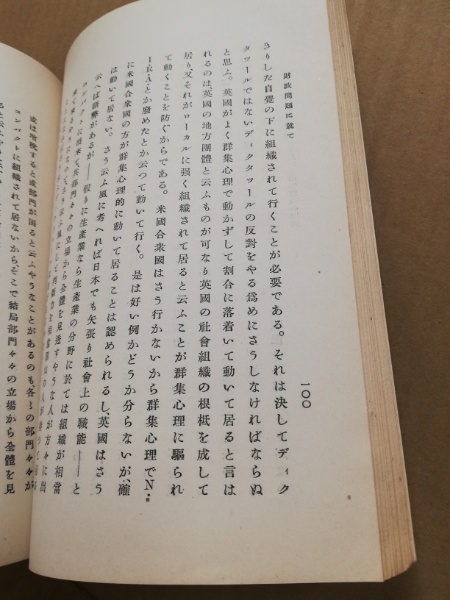 財政問題に就て
一〇〇
きりした自覺の下に組織されて行くことが必要である。それは決してディク
タツールではないディクタツールの反對をやる爲めにさうしなければならぬ
と思ふ。英國がよく群集心理で動かずして割合に落着いて動いて居ると言は
れるのは、英國の地方團體と云ふものが可なり英國の社會組織の根柢を成して
居り、又それがローカルに強く組織されて居ると云ふことが群集心理に驅られ
て動くことを防ぐからである。米國合衆國はさう行かないから群集心理でN・
I・R・A・とか騷めたとか云つて動いて行く。是は好い例かどうか分らないが、確
に米國合衆國の方が群集心理的に動いて居ることは認められるし、英國はさう
は動いて居ない。さう云ふ風に考へれば日本でも矢張り社會上の職能――と
云へば語弊があるが――假りに生產業なら生產業の分野に於ては組織が相當
コンパクトに出來て、其部門々々の立場から全體を見逃すやうな人が方々に出
或は增稅すると或部門が困ると云ふやうなことがあるのも各々の部門々々が
コンパクトに組織されて居ないから、そこで結局部門々々の立場から全體を見